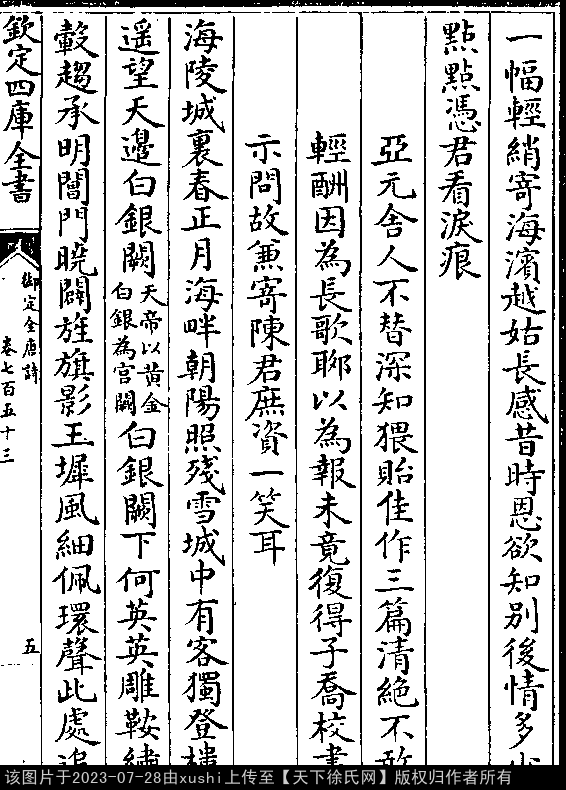 一幅輕綃寄海濱越姑長感昔時恩欲知別後情多少
點點憑君看淚痕
亞元舍人不替深知猥貽佳作三篇清絕不敢
輕酬因為長歌聊以為報未竟復得子喬校書
示問故兼寄陳君庶資一笑耳
海陵城裏春正月海畔朝陽照殘雪城中有客獨登樓
遥望天邉白銀闕天帝以黄金白銀為宮闕白銀闕下何英英雕鞍繡
轂趨承明闇門曉闢旌旗影玉墀風細佩環聲此處追
欽定四庫全書
御定全唐詩
卷七百五十三
五
该图片于2023-07-28由xushi上传至【天下徐氏网】版权归作者所有